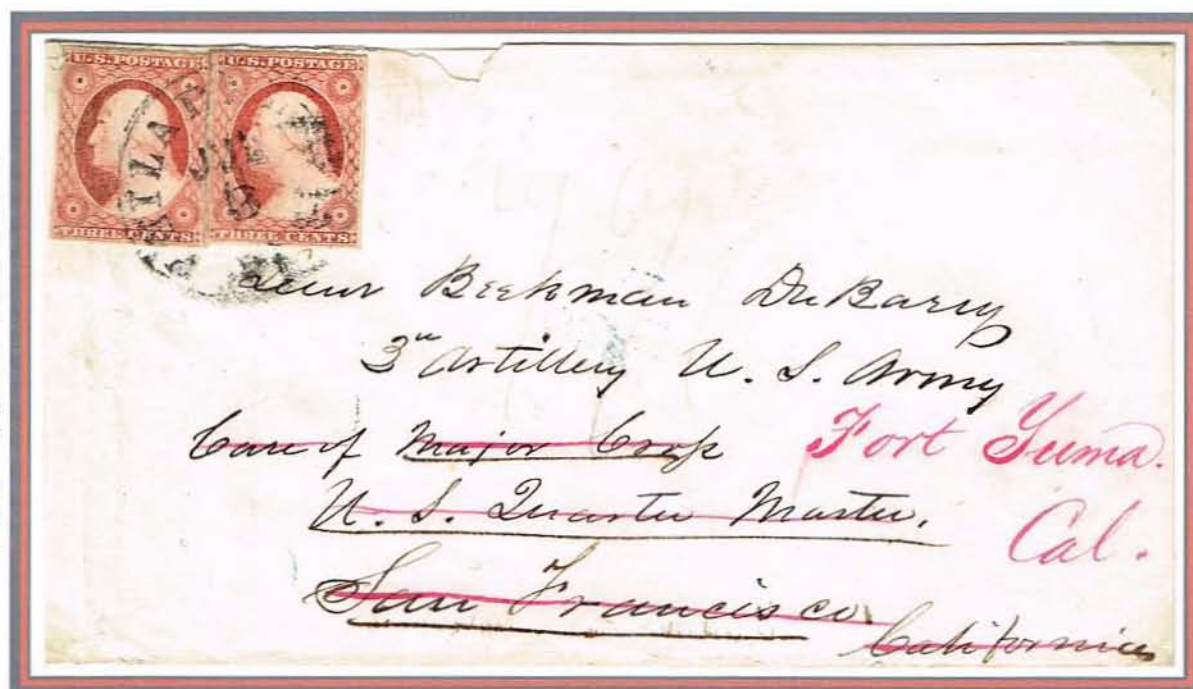 U.S. POSTAGE U.S. POSTAGE
THREE CENTS THREE CENTS
Beekman DuBarry
3d Artillery U. S. Army
Care of Major Cross Fort Yuma.
U. S. Quarter Master. Cal.
San Francisco
California